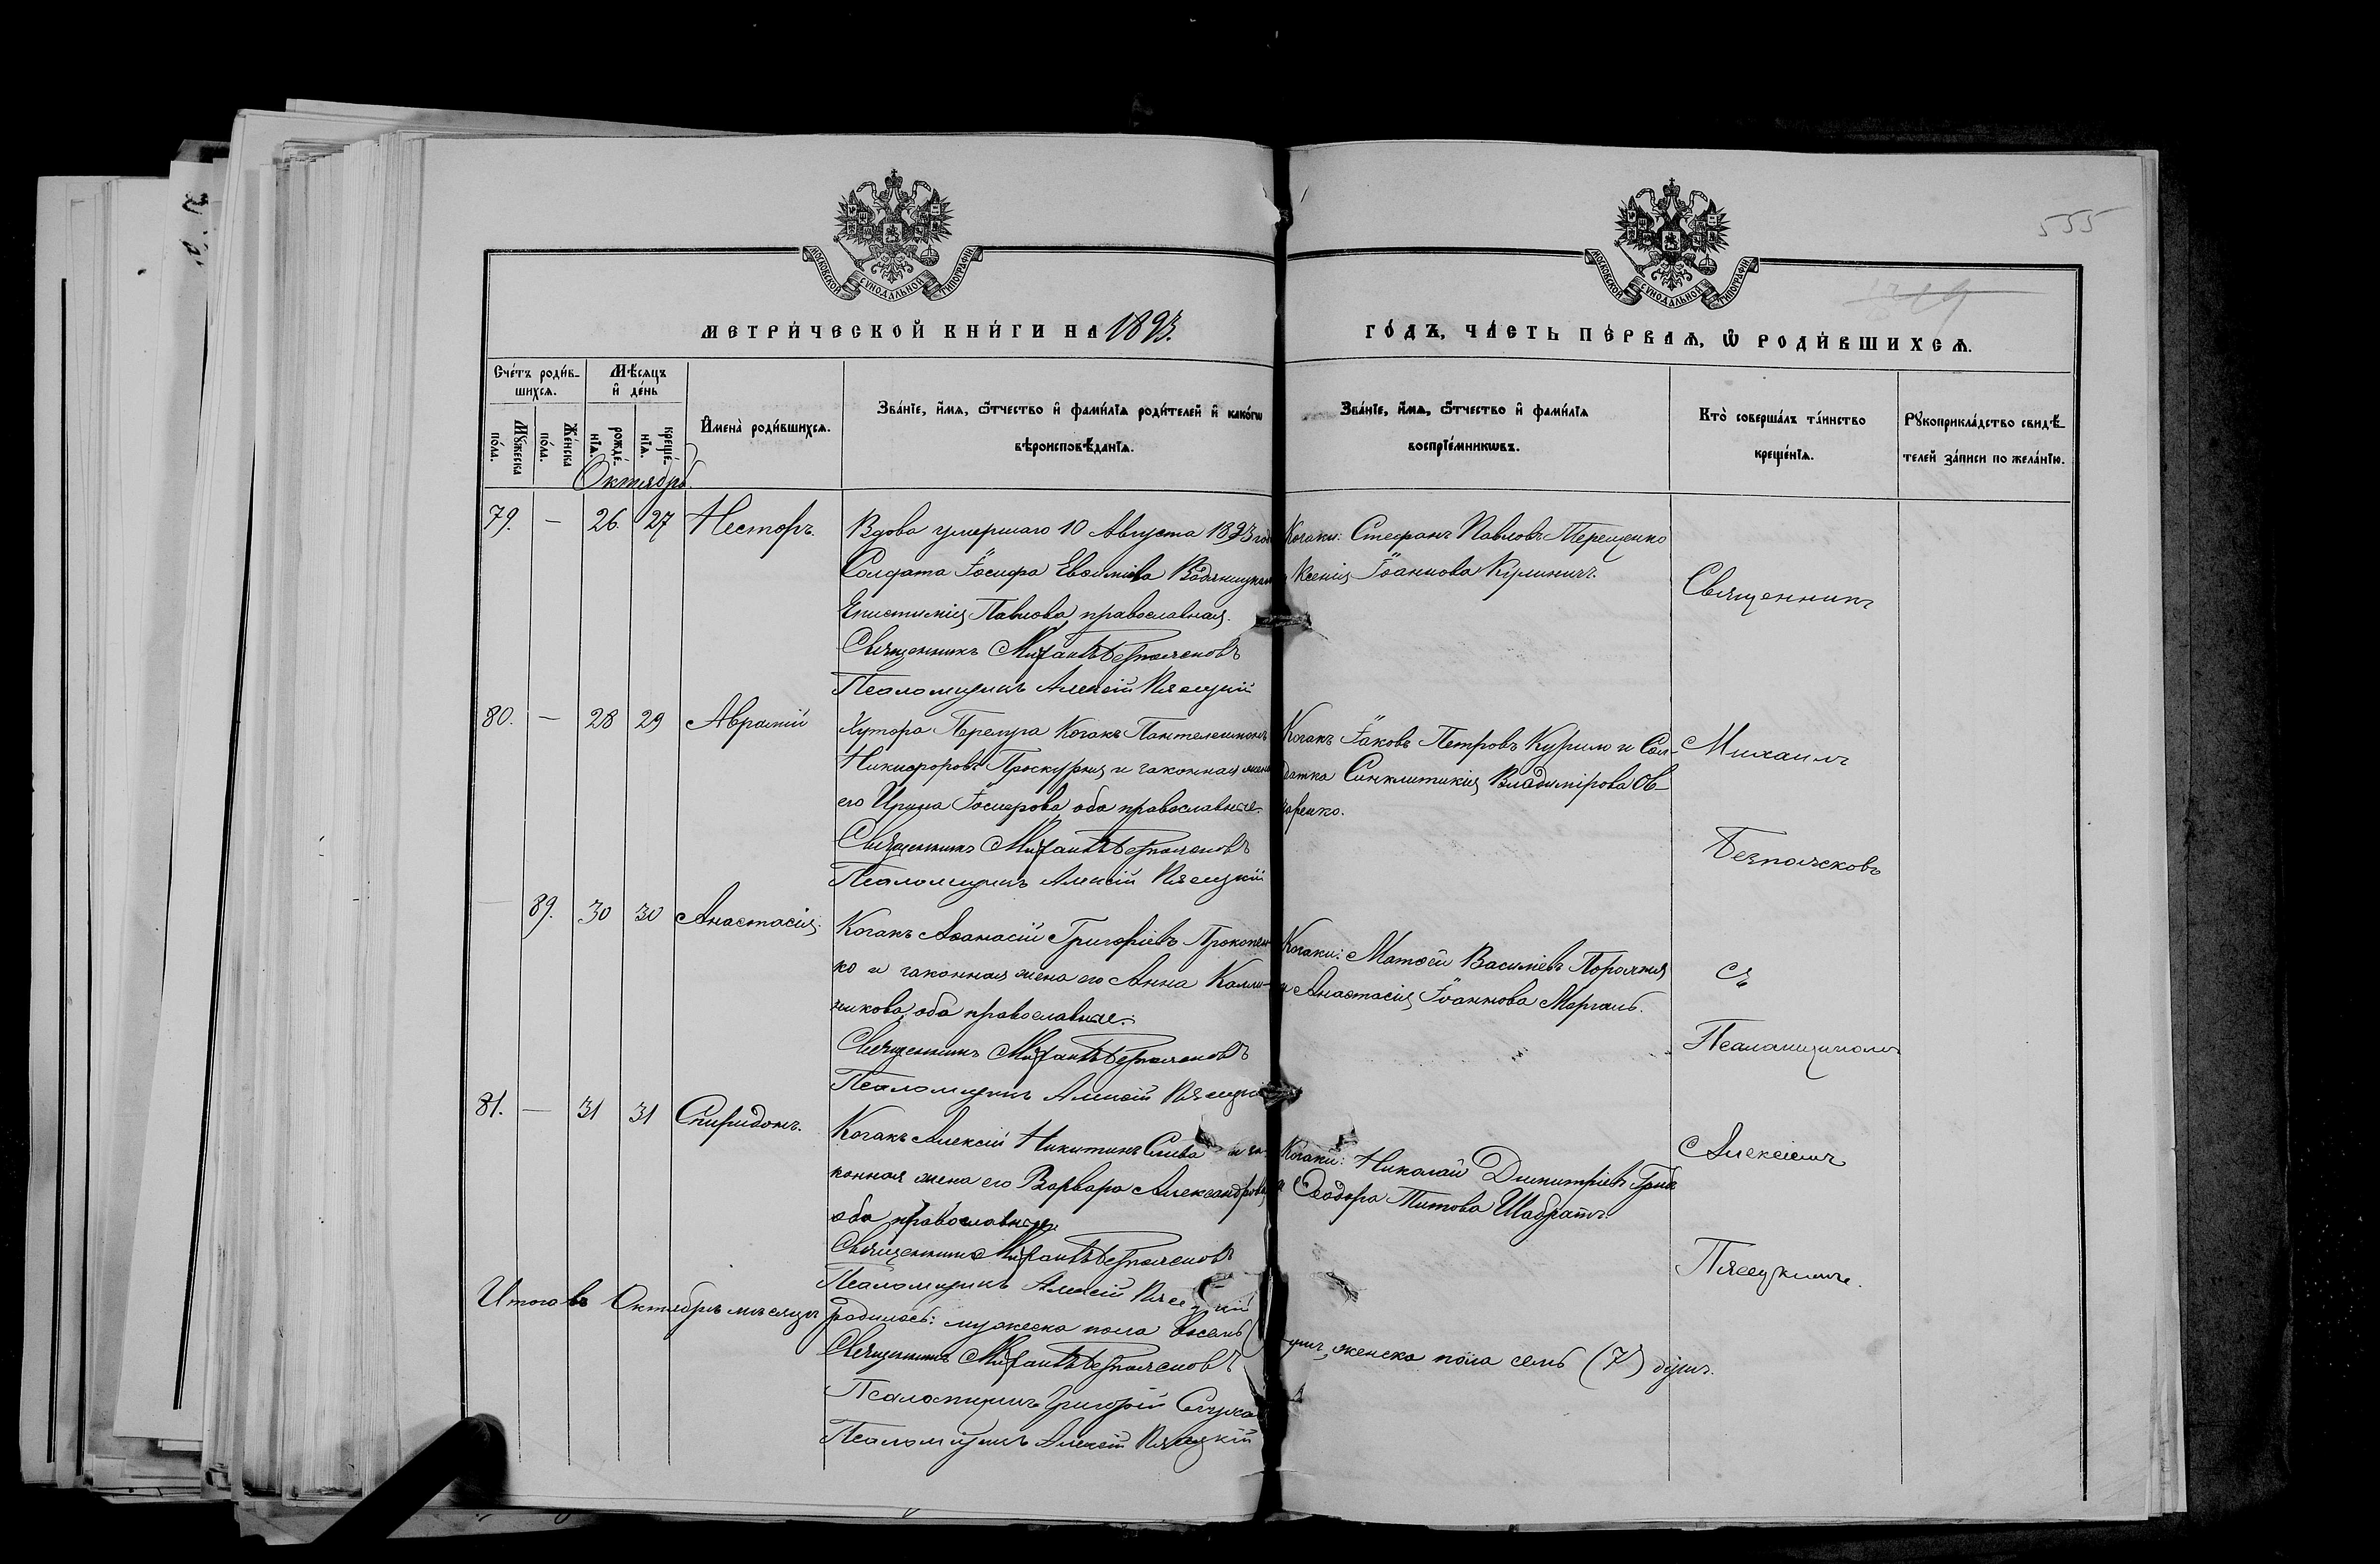 555
1219
МОСКОВСКОЙ СѴНОДАЛЬНОЙ ТИПОГРАФІИ
МОСКОВСКОЙ СѴНОДАЛЬНОЙ ТИПОГРАФІИ
МЕТРИ́ЧЕСКОЙ КНИ́ГИ НА 1893.
ГО́ДЪ, ЧА́СТЬ ПЕ́РВАѦ, Ѡ҆ РОДИ́ВШИХСѦ.
Сче́тъ роди́в-
шихсѧ.
Мꙋ́жеска по́ла.
Же́нска по́ла.
Мѣ́сѧцъ
и҆ де́нь
рожде́-нїѧ.
креще́-нїѧ.
И҆мена̀ роди́вшихсѧ.
Зва́нїе, и҆́мѧ, ѻ҆́тчество и҆ фами́лїѧ роди́телей и҆ како́гѡ
вѣроисповѣ́данїѧ.
Зва́нїе, и҆́мѧ, ѻ҆́тчество и҆ фами́лїѧ
воспрїе́мникѡвъ.
Кто̀ соверша́лъ та́инство
креще́нїѧ.
Рꙋкоприкла́дство свидѣ́-
телей за́писи по жела́нїю.
Октябрь
79. — 26. 27 Несторъ.
Вдова умершаго 10 Августа 1893 года
Солдата Іосифа Евѳиміева
Епистимія Павлова, православная.
Священникъ Михаилъ Безпалчековъ
Псаломщикъ Алексій Пясецкій
Козаки: Стефанъ Павловъ Терещенко
и Ксенія Іоаннова Кулиничъ.
80. — 28 29 Аврамій
Хутора Козакъ Пантелеимонъ
Никифоровъ Проскурня и законная жена
его Ирина Іосифова, оба православные.
Священникъ Михаилъ Безпалчековъ
Псаломщикъ Алексій Пясецкій
Козакъ Іаковъ Петровъ и Сол-
датка Синклитикія Владимірова Ов-
чаренко.
89. 30 30 Анастасія.
Козакъ Аѳанасій Григоріевъ Прокопен-
ко и законная жена его Анна Калли-
никова, оба православные.
Священникъ Михаилъ Безпалчековъ
Псаломщикъ Алексій Пясецкій
Козаки: Матѳей Василіевъ
и Анастасія Іоаннова
81. — 31 31 Спиридонъ.
Козакъ Алексій Никитинъ Слива и за-
конная жена его Варвара Александрова,
оба православные.
Священникъ Михаилъ Безпалчековъ
Псаломщикъ Алексій Пясецкій
Козаки: Николай Димитріевъ
и Ѳеодора Титова
Священникъ
Михаилъ
Безпалчековъ
съ
Псаломщикомъ
Алексіемъ
Пясецкимъ.
Итого въ Октябрѣ мѣсяцѣ родилось: мужеска пола восемь
душъ, женска пола семь (7) душъ.
Священникъ Михаилъ Безпалчековъ
Псаломщикъ Григорій
Псаломщикъ Алексій Пясецкій